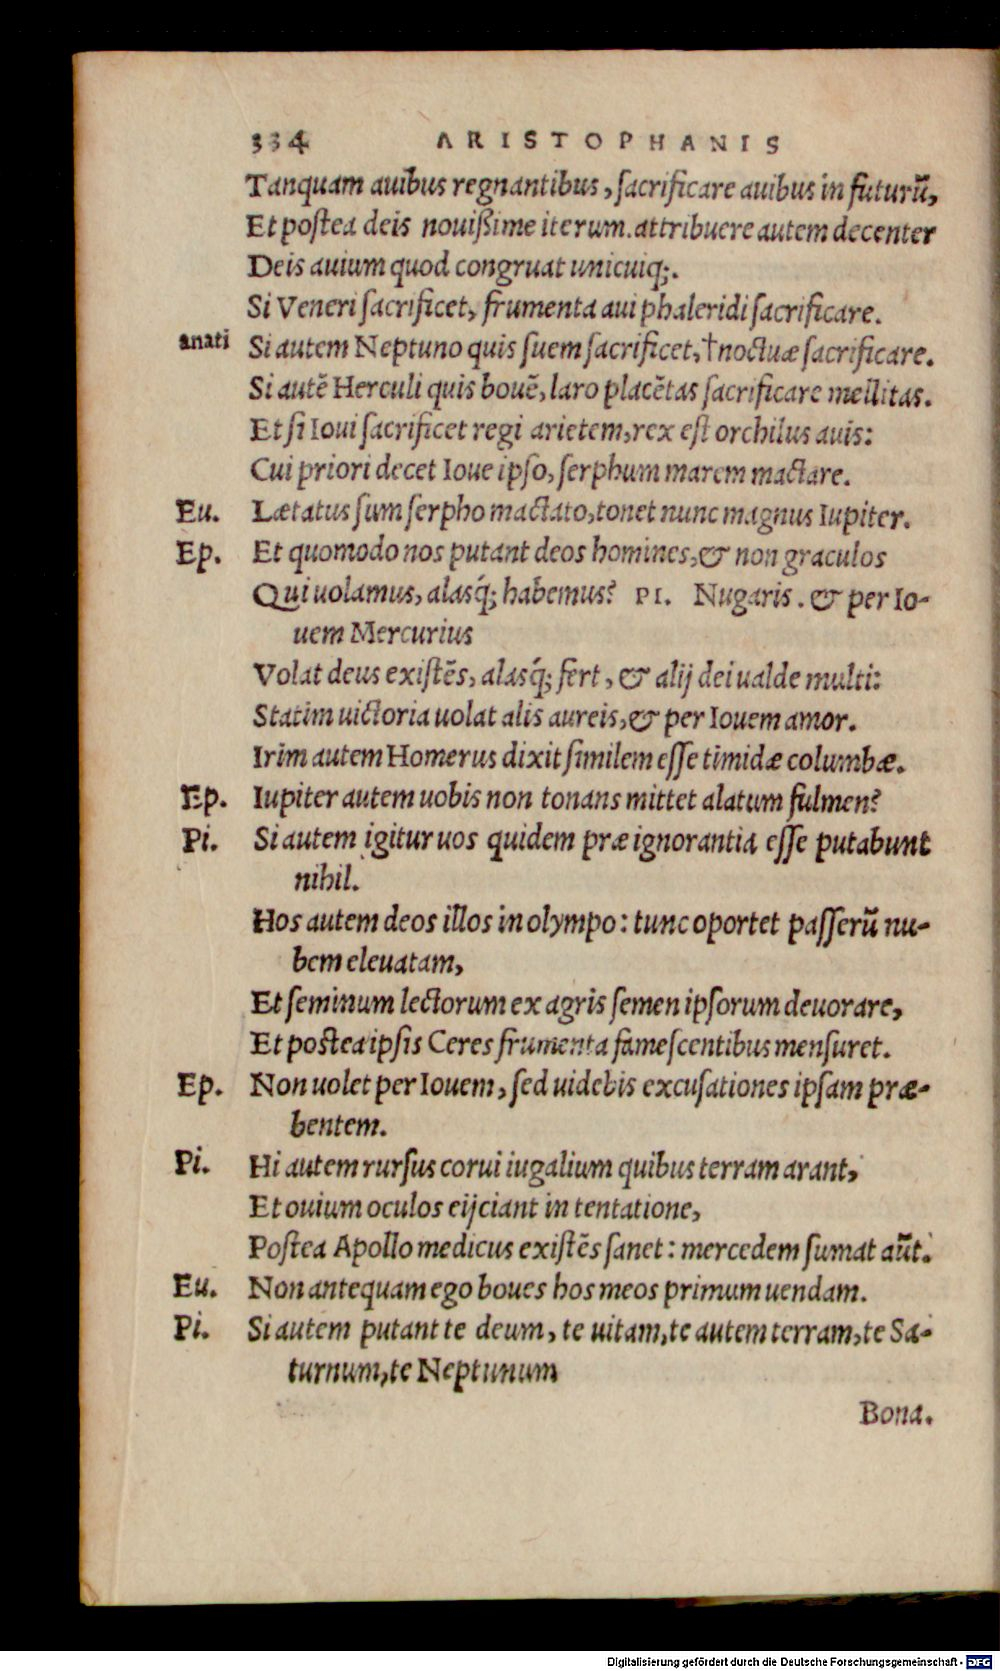 334 ARISTOPHANIS
Tanquam auibus regnantibus, sacrificare auibus in futurũ,
Et postea deis nouißime iterum. attribuere autem decenter
Deis auium quod congruat unicuiq;.
Si Veneri sacrificet, frumenta aui phaleridi sacrificare.
anati Si autem Neptuno quis suem sacrificet, † noctuæ sacrificare.
Si autẽ Herculi quis bouẽ, laro placẽtas sacrificare mellitas.
Et si Ioui sacrificet regi arietem, rex est orchilus auis:
Cui priori decet Ioue ipso, serphum marem mactare.
Eu. Lætatus sum serpho mactato, tonet nunc magnus Iupiter.
Ep. Et quomodo nos putant deos homines, & non graculos
Qui uolamus, alasq́; habemus? PI. Nugaris. & per Io-
uem Mercurius
Volat deus existẽs, alasq́; fert, & alij dei ualde multi:
Statim uictoria uolat alis aureis, & per Iouem amor.
Irim autem Homerus dixit similem esse timidæ columbæ.
Ep. Iupiter autem uobis non tonans mittet alatum fulmen?
Pi. Si autem igitur uos quidem præ ignorantia esse putabunt
nihil.
Hos autem deos illos in olympo: tunc oportet passerũ nu-
bem eleuatam,
Et seminum lectorum ex agris semen ipsorum deuorare,
Et postea ipsis Ceres frumenta famescentibus mensuret.
Ep. Non uolet per Iouem, sed uidebis excusationes ipsam præ-
bentem.
Pi. Hi autem rursus corui iugalium quibus terram arant,
Et ouium oculos eijciant in tentatione,
Postea Apollo medicus existẽs sanet: mercedem sumat aũt.
Eu. Non antequam ego boues hos meos primum uendam.
Pi. Si autem putant te deum, te uitam, te autem terram, te Sa-
turnum, te Neptunum
Bona.
Digitalisierung gefördert durch die Deutsche Forschungsgemeinschaft - DFG